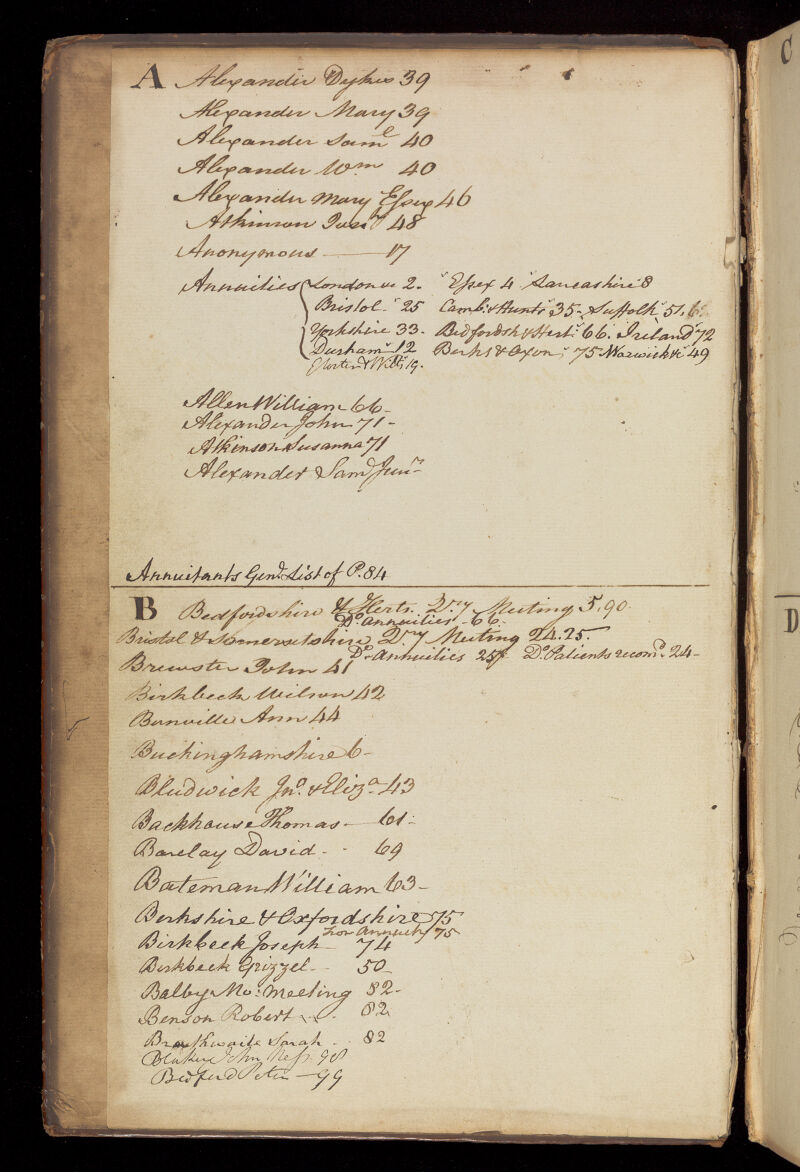 A Alexander Dykes 39
Alexander Mary 39
Alexander Saml 40
Alexander Wm 40
Alexander Mary Essex 46
Atkinson 48
Anonymous — 17
Annuities London &c 2. " Essex 4 " Lancashire " 8
Bristol " 25 Camb: & Hunts " 35 - Suffolk " 51.
Yorkshire 33 - Bedfordsh & Hert: " 66. Ireland " 72
Durham " 12 Berks & Oxon " 75 - Warwick &c " 49
Glo'ster & Wilts 19.
Allen William 66 -
Alexander John 71 -
Atkinson Susanna 71
Alexander Saml Junr -
Annuitants Genl List of P. 84
B Bedfordshire & Herts. Qr.y Meeting 5. 90
Do annuities - 66
Bristol & Somersetshire Qr.y Meeting 24. 25.
Do annuities 25 Do Patients recomd. 24 -
Brewster John 41
Birkbeck Wilson 42
Bonville Ann 44
Buckinghamshire 6 -
Bludwick Jno. & Eliza 43
Backhouse Thomas — 61 -
Barclay David - - 69
Bateman William 63 -
Berkshire & Oxfordshire 75
for Annuity 75
Birkbeck Joseph - 74
Birkbeck Grizzel - - 50
Balby Mo: Meeting 82 -
Benson Robert - - 82
Braithwaite Sarah - 82
John 98
Bedford Peter — 99
C
D